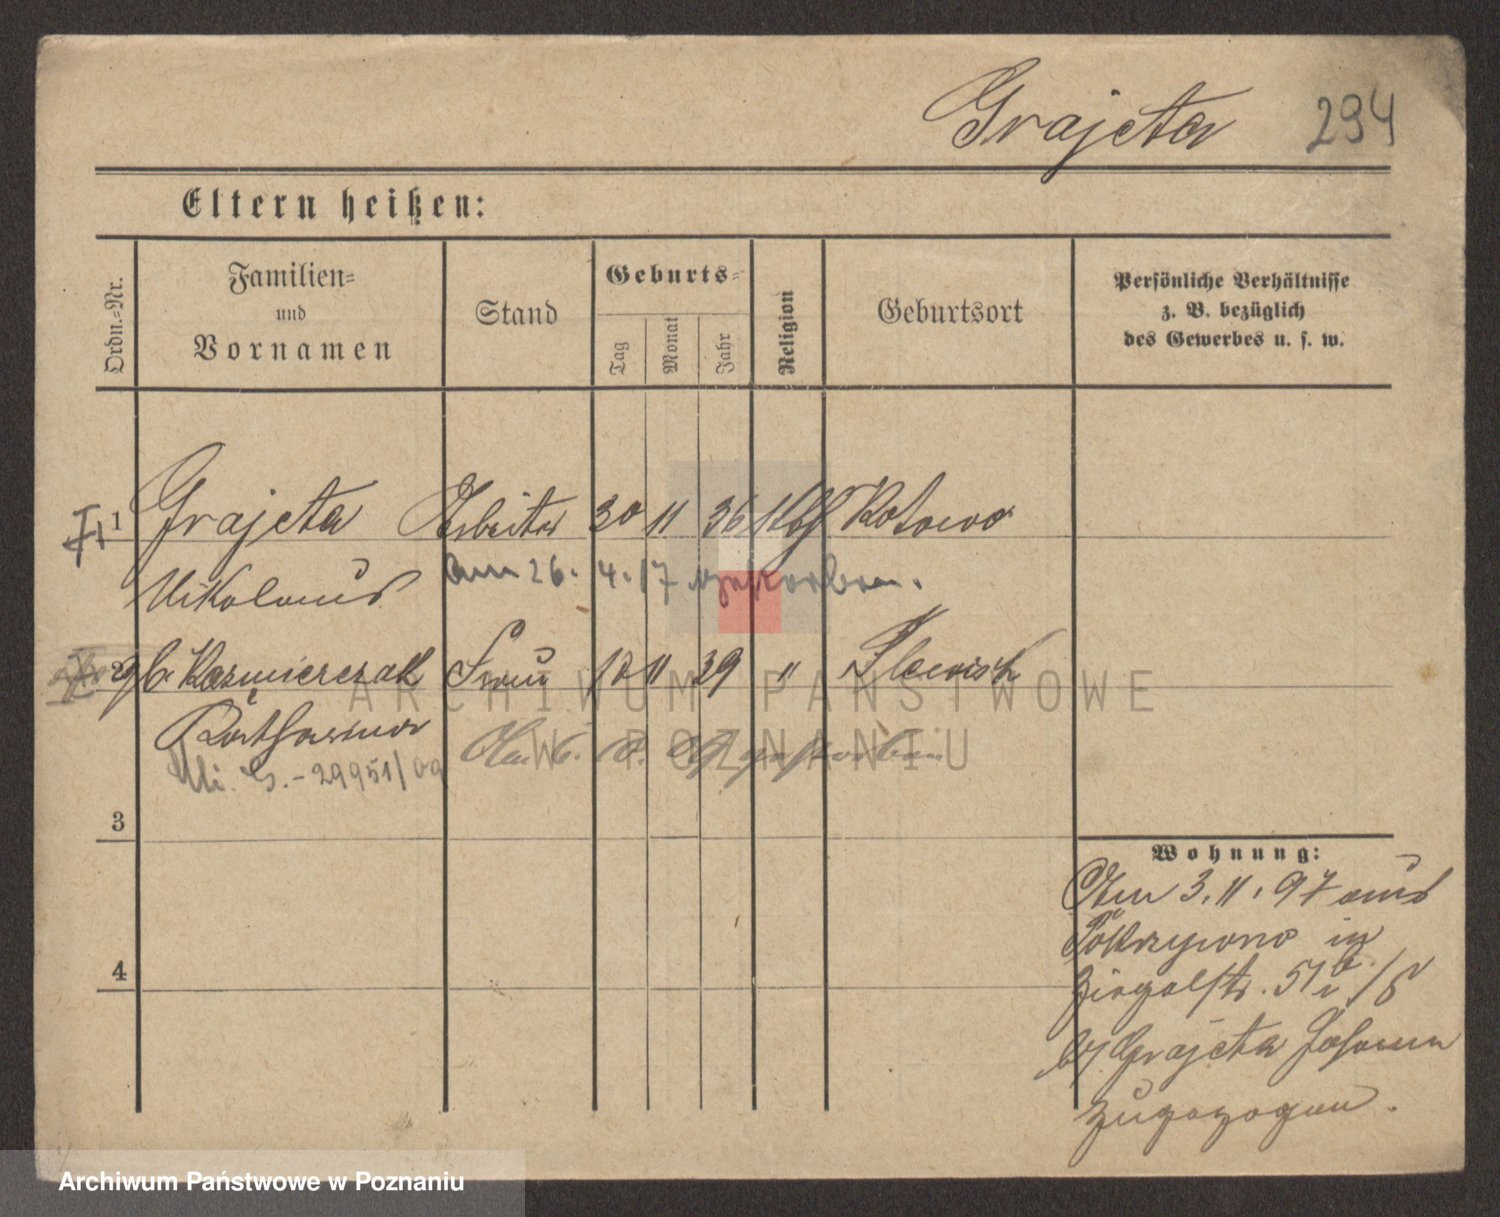 Grajeta 294
Eltern heißen:
Ordn.-Nr.
Familien-
und
Vornamen
Stand
Geburts-
Tag
Monat
Jahr
Religion
Geburtsort
Persönliche Verhältnisse
z. B. bezüglich
des Gewerbes u. s. w.
1 Grajeta Arbeiter 30 11 36 kth Kotowo
Nikolaus am 26. 4. 17 gestorben.
2 gb. Kazmierczak Frau 10 11 39 " Plewisk
Katharina
Am 6. 10. 09 gestorben
Mi. G. - 29951/09
3
4
Wohnung:
Am 3. 11. 97 aus
Pokrzywno in
Ziegelstr. 51 b
b/ Grajeta Johann
zugezogen.
ARCHIWUM PAŃSTWOWE
W POZNANIU
Archiwum Państwowe w Poznaniu